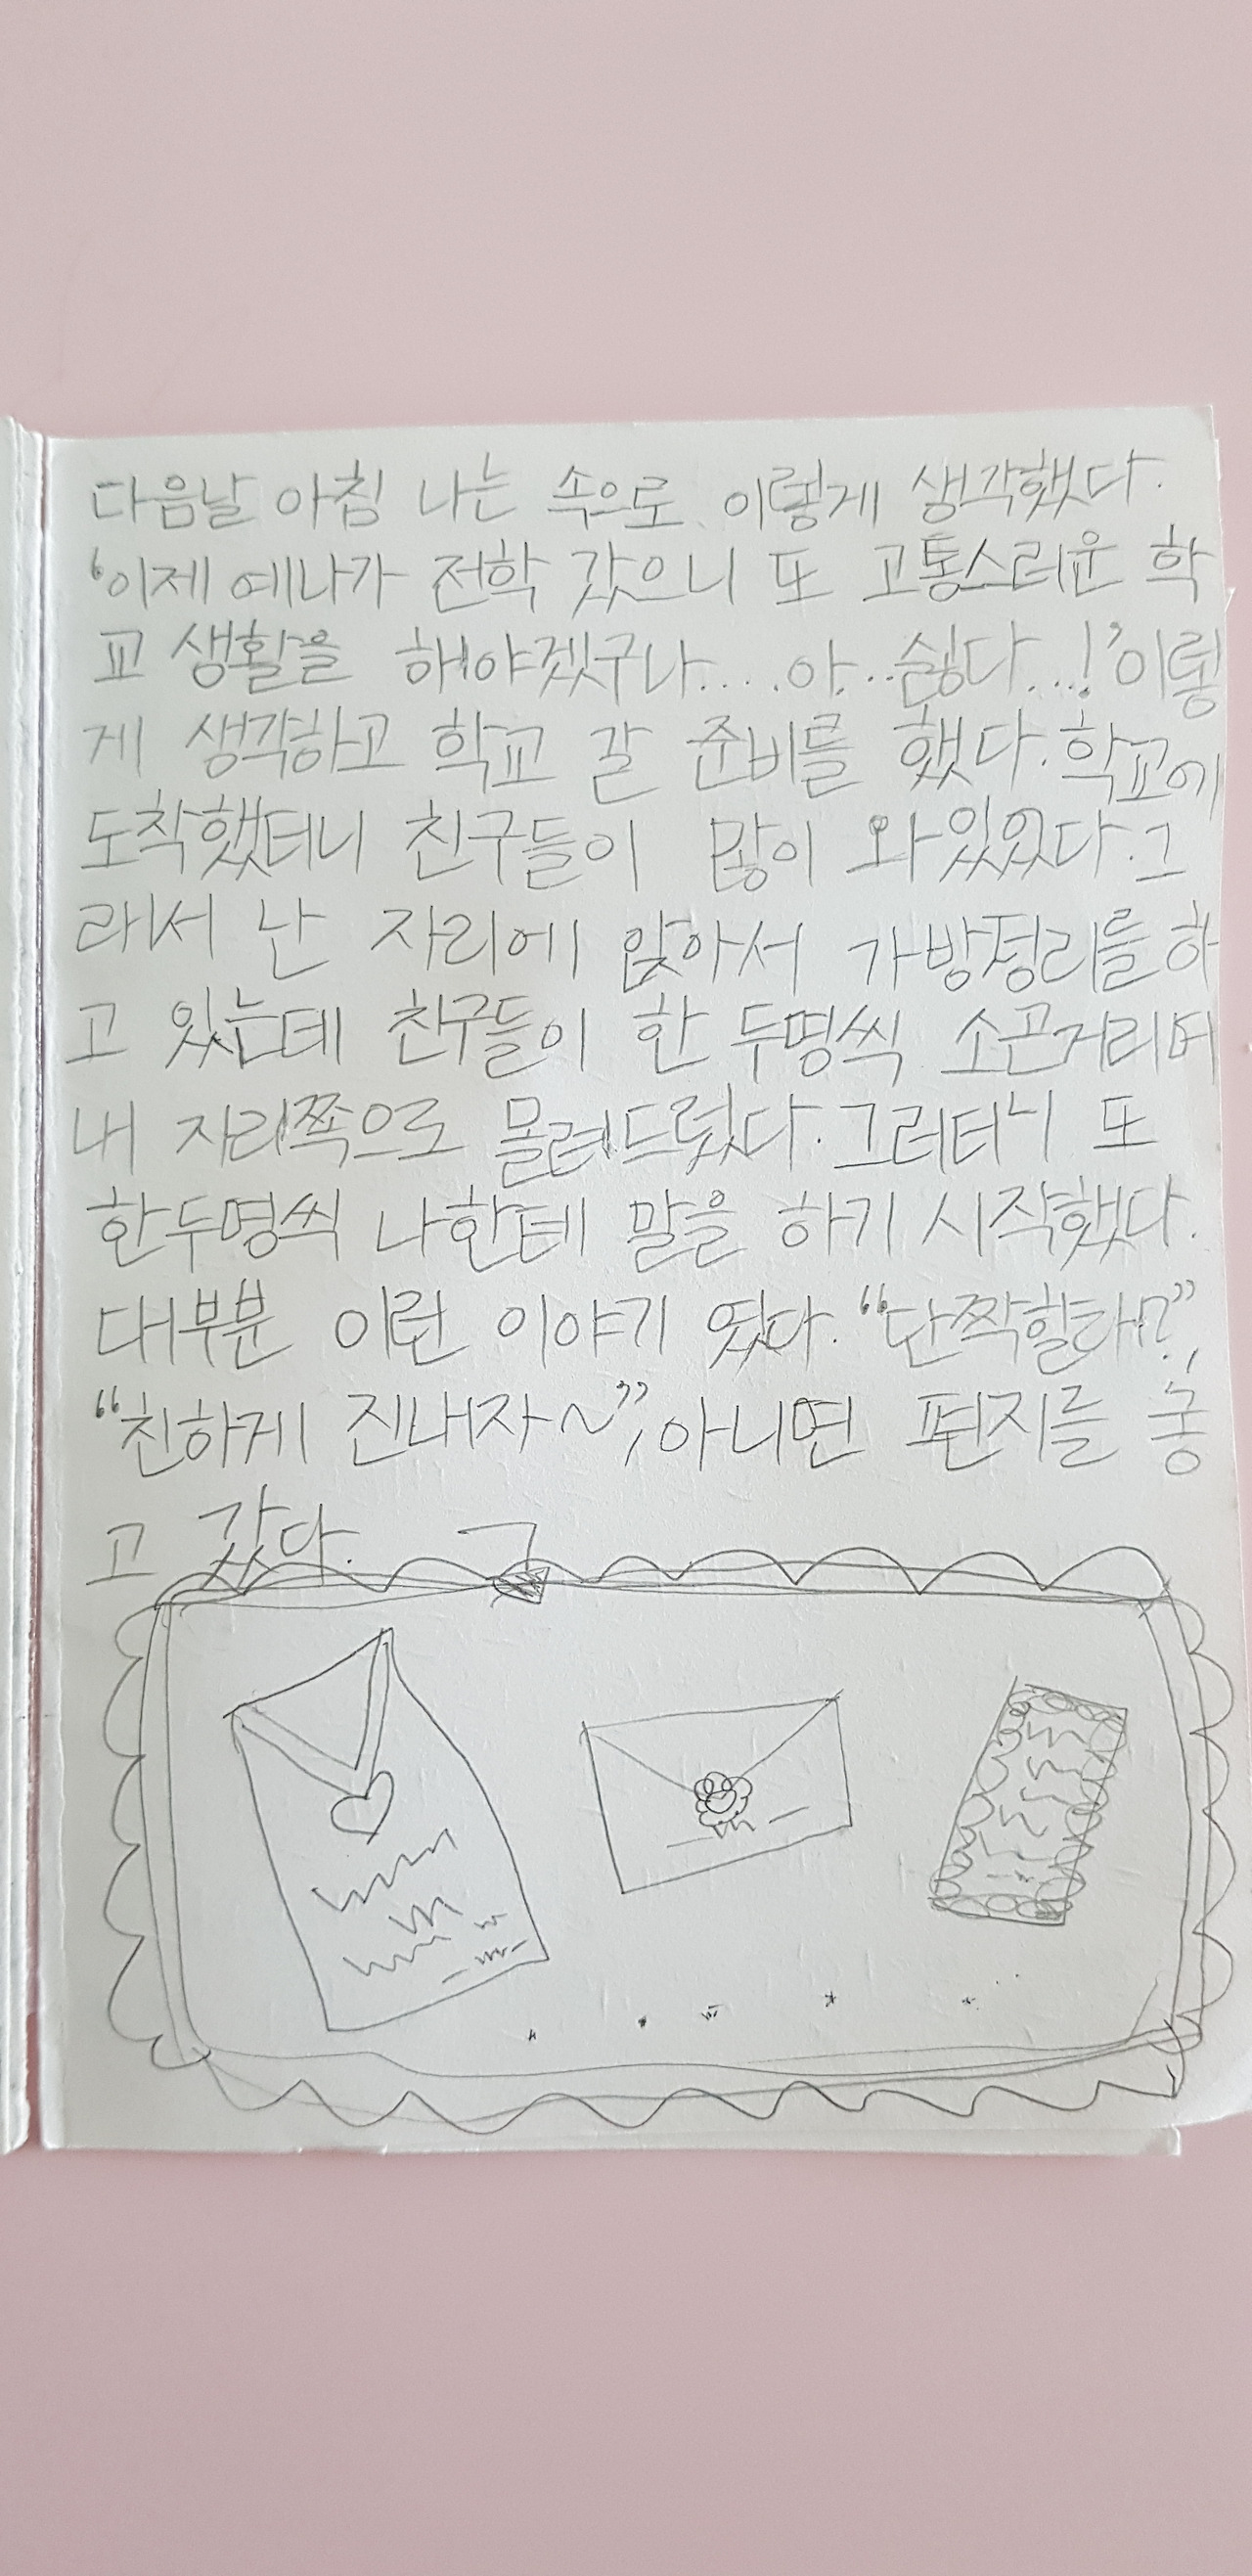 다음날 아침 나는 속으로 이렇게 생각했다.
'이제 예나가 전학 갔으니 또 고통스러운 학
교 생활을 해야겠구나....아..싫다...!'이렇
게 생각하고 학교 갈 준비를 했다.학교에
도착했더니 친구들이 많이 와있있다.그
래서 난 자리에 앉아서 가방정리를하
고 있는데 친구들이 한 두명씩 소곤거리며
내 자리쪽으로 몰려드렀다.그러더니 또
한두명씩 나한테 말을 하기 시작했다.
대부분 이런 이야기 였다."단짝할라!?",
"친하게 진내자~",아니면 편지를 놓
고 갔다.